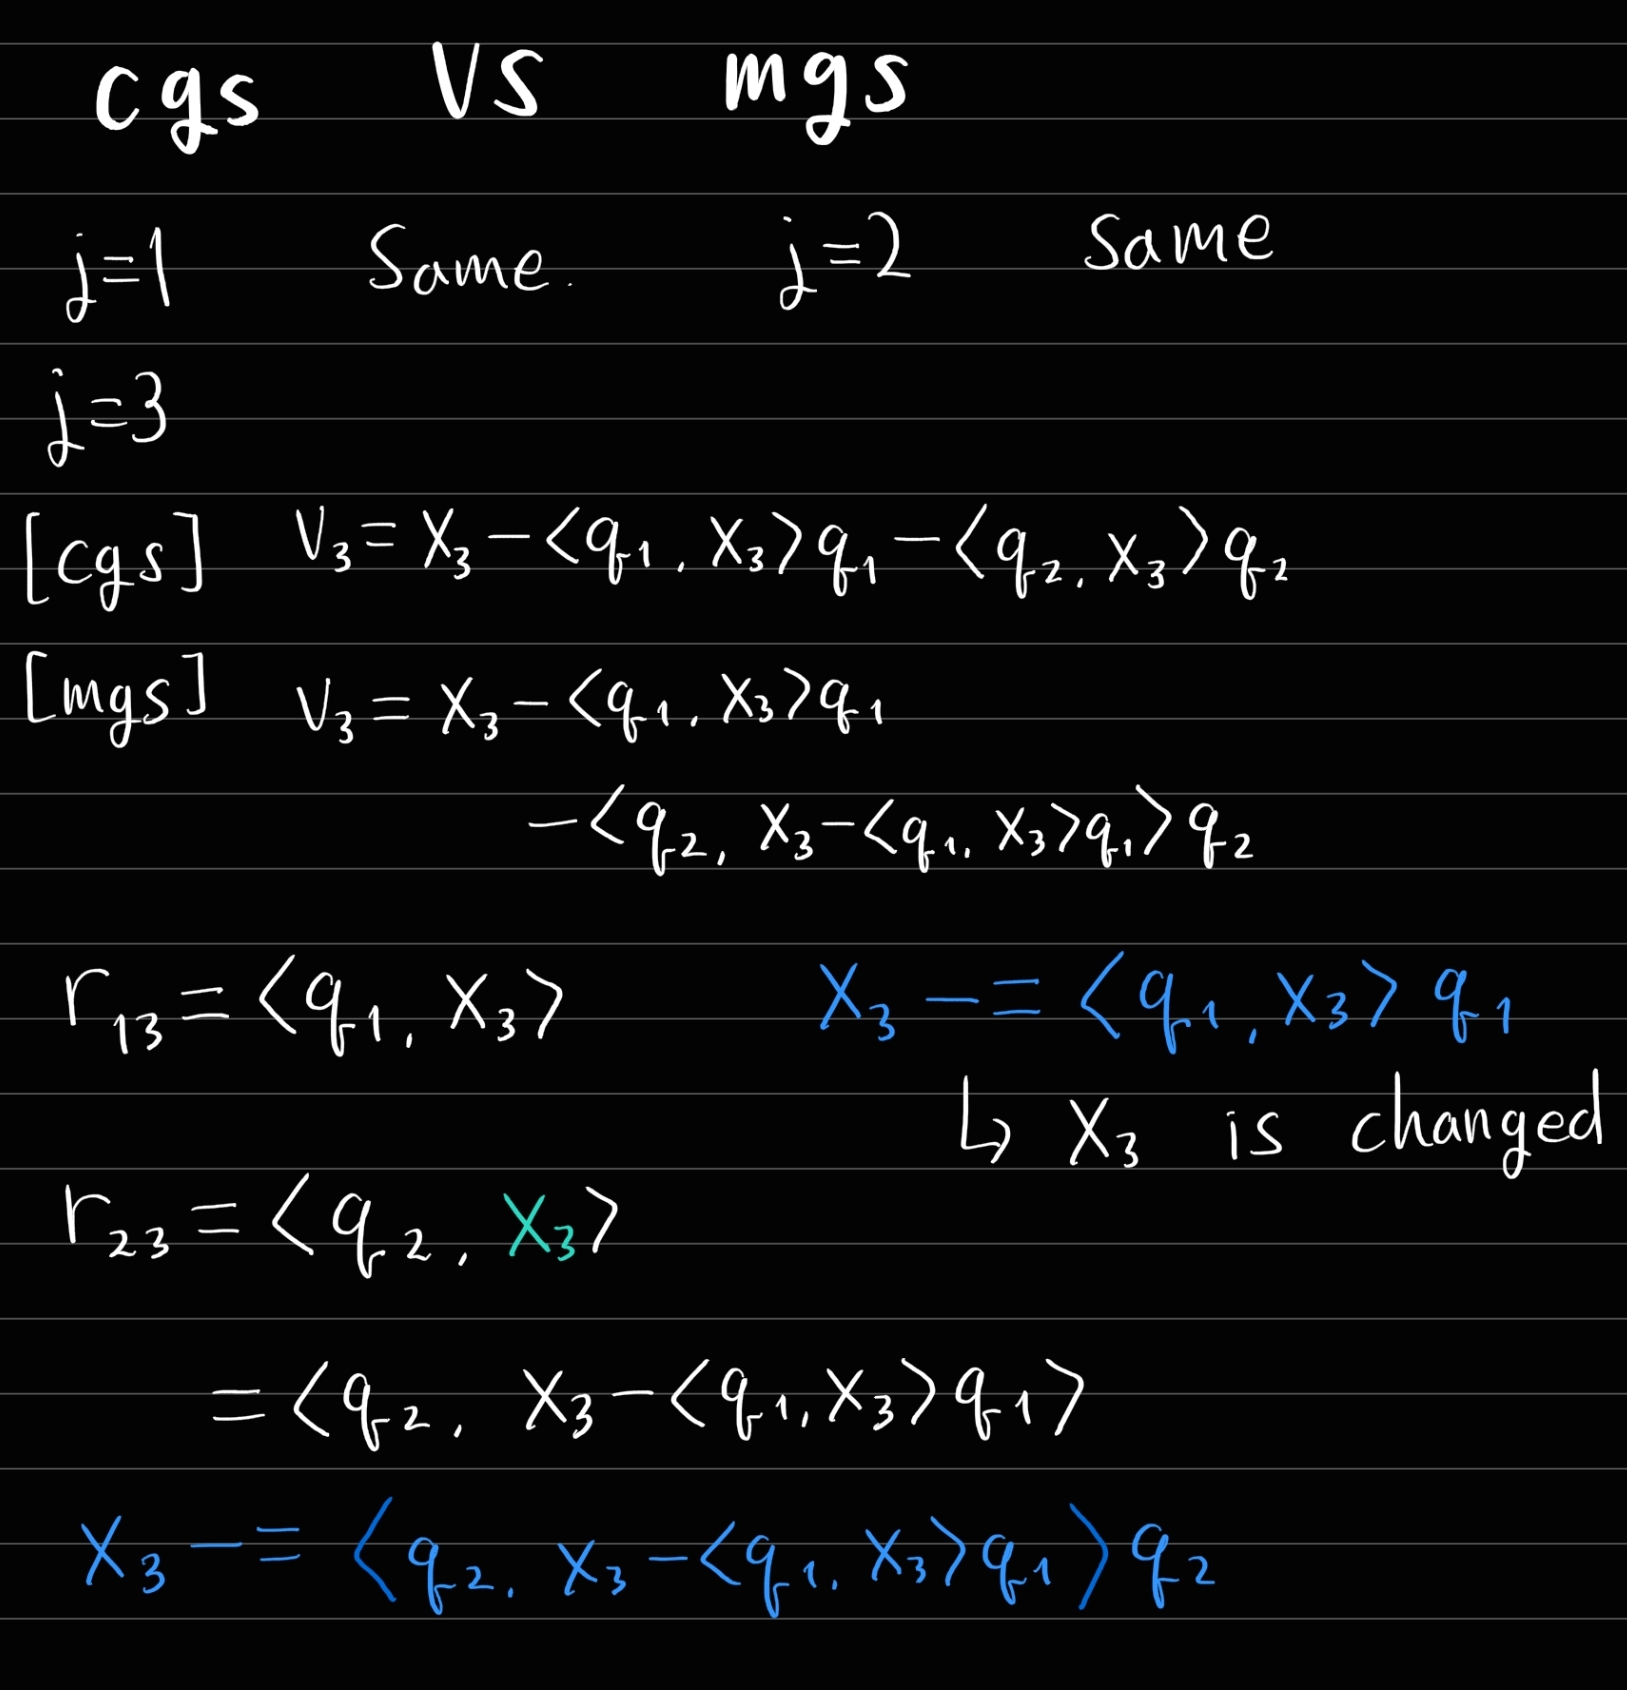 cgs VS mgs
j=1 Same. j=2 Same
j=3
[cgs] V₃ = X₃ - <q₁, X₃>q₁ - <q₂, X₃>q₂
[mgs] V₃ = X₃ - <q₁, X₃>q₁
- <q₂, X₃ - <q₁, X₃>q₁>q₂
r₁₃ = <q₁, X₃> X₃ -= <q₁, X₃>q₁
↳ X₃ is changed
r₂₃ = <q₂, X₃>
= <q₂, X₃ - <q₁, X₃>q₁>
X₃ -= <q₂, X₃ - <q₁, X₃>q₁>q₂